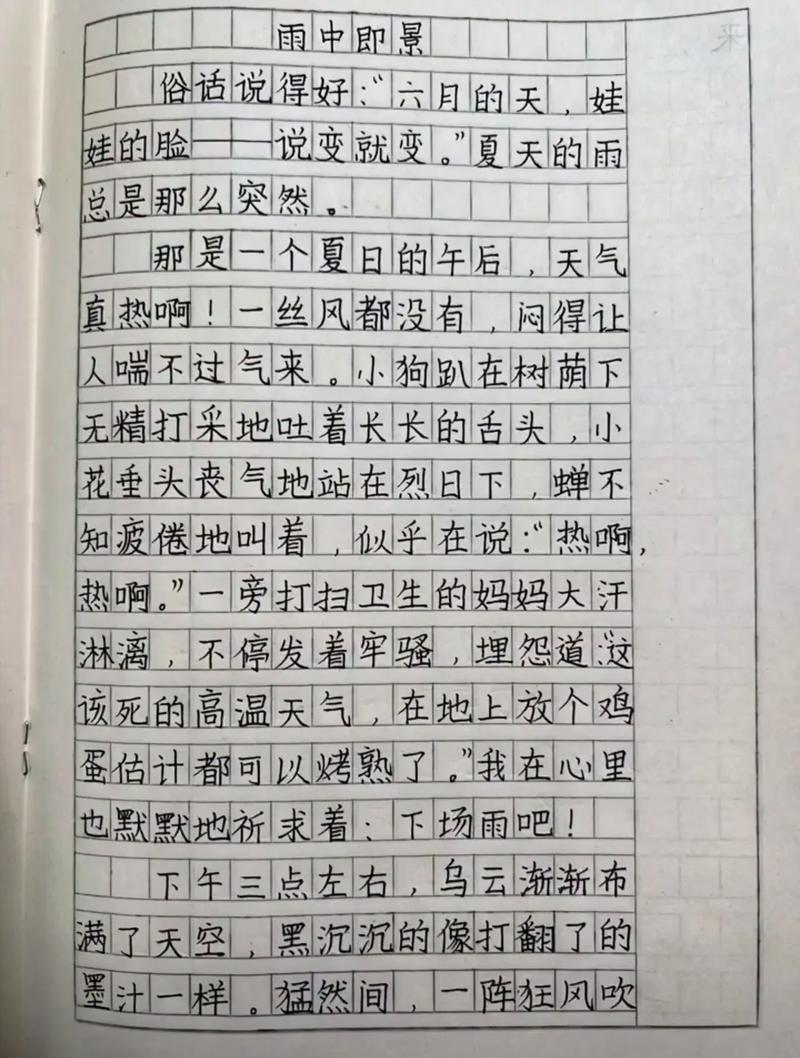 雨中即景
俗话说得好：“六月的天，娃
娃的脸——说变就变。”夏天的雨
总是那么突然。
那是一个夏日的午后，天气
真热啊！一丝风都没有，闷得让
人喘不过气来。小狗趴在树荫下
无精打采地吐着长长的舌头，小
花垂头丧气地站在烈日下，蝉不
知疲倦地叫着，似乎在说：“热啊，
热啊。”一旁打扫卫生的妈妈大汗
淋漓，不停发着牢骚，埋怨道：“这
该死的高温天气，在地上放个鸡
蛋估计都可以烤熟了。”我在心里
也默默地祈求着：下场雨吧！
下午三点左右，乌云渐渐布
满了天空，黑沉沉的像打翻了的
墨汁一样。猛然间，一阵狂风吹